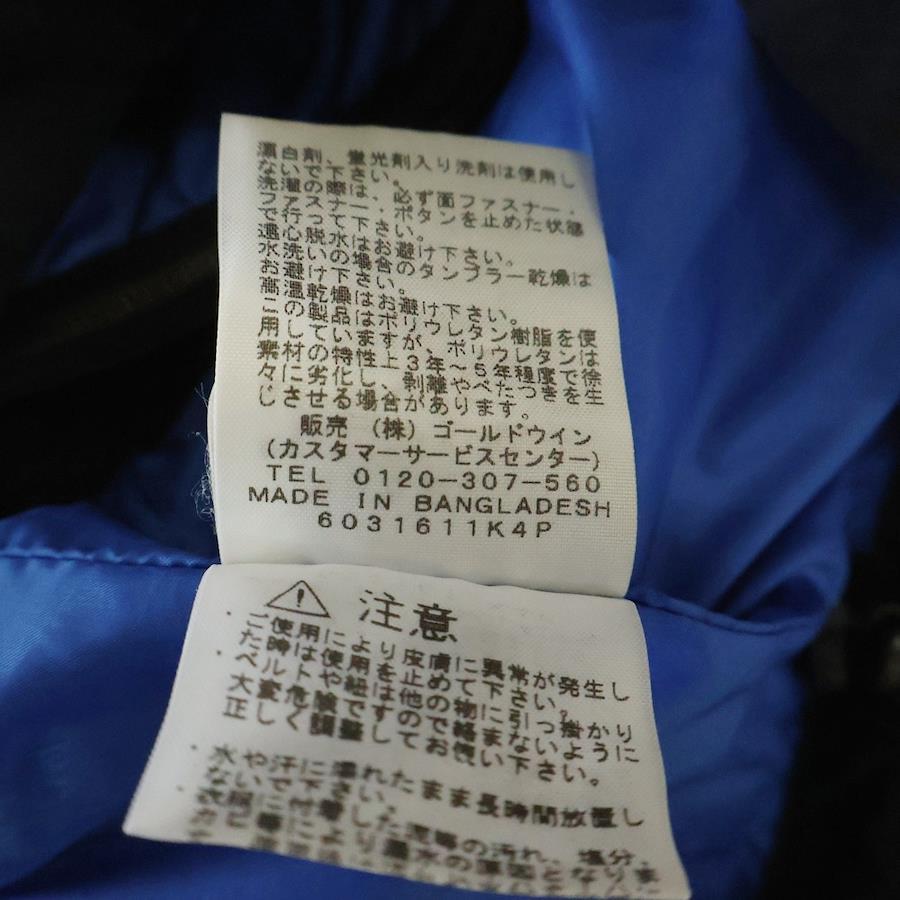 漂白剤、蛍光剤入り洗剤は使用し
ないで下さい。
洗濯の際は、必ず面ファスナー・
ファスナー・ボタンを止めた状態
で行って下さい。
遠心脱水はお避け下さい。
水洗いの場合のタンブラー乾燥は
お避け下さい。
高温乾燥はお避け下さい。
この製品はポリウレタン樹脂を使
用していますが、ポリウレタンは
素材の特性上3年～5年程度で徐
々に劣化し、剥離やべたつきを生
じさせる場合があります。
販売 (株) ゴールドウイン
(カスタマーサービスセンター)
TEL 0120-307-560
MADE IN BANGLADESH
6031611K4P
注意
・ご使用により皮膚に異常が発生し
た時は使用を止めて下さい。
・ベルトや紐は他の物に引っ掛かり
大変危険ですので絡まないように
正しく調整してお使い下さい。
・水や汗に濡れたまま長時間放置し
ないで下さい。
衣服に付着した泥等の汚れ、塩分、
カビ等により漏水の原因となりま